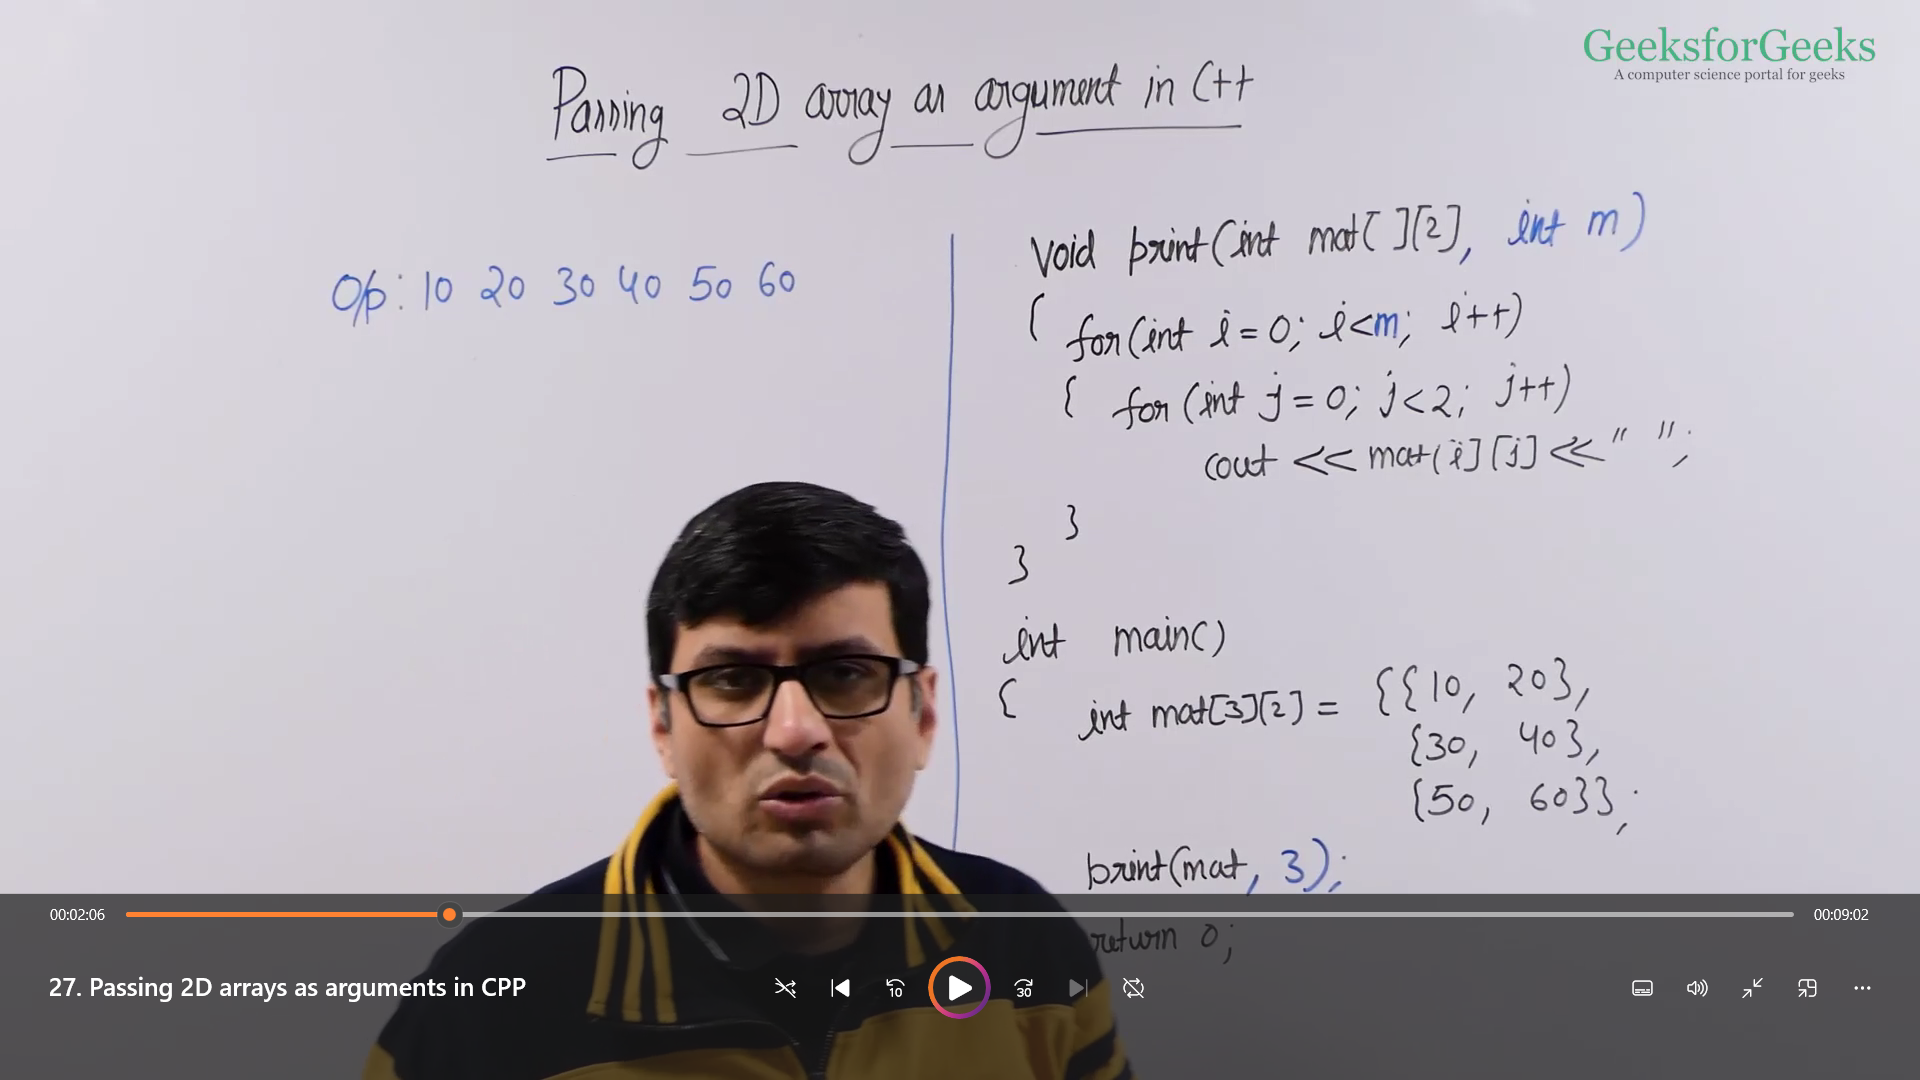 GeeksforGeeks
A computer science portal for geeks
Passing 2D array as argument in C++
O/p: 10 20 30 40 50 60
void print(int mat[ ][2], int m)
{ for(int i = 0; i<m; i++)
{ for(int j = 0; j<2; j++)
cout << mat[i][j] << " ";
}
}
int main()
{ int mat[3][2] = {{10, 20},
{30, 40},
{50, 60}};
print(mat, 3);
return 0;
00:02:06
00:09:02
27. Passing 2D arrays as arguments in CPP
10
30